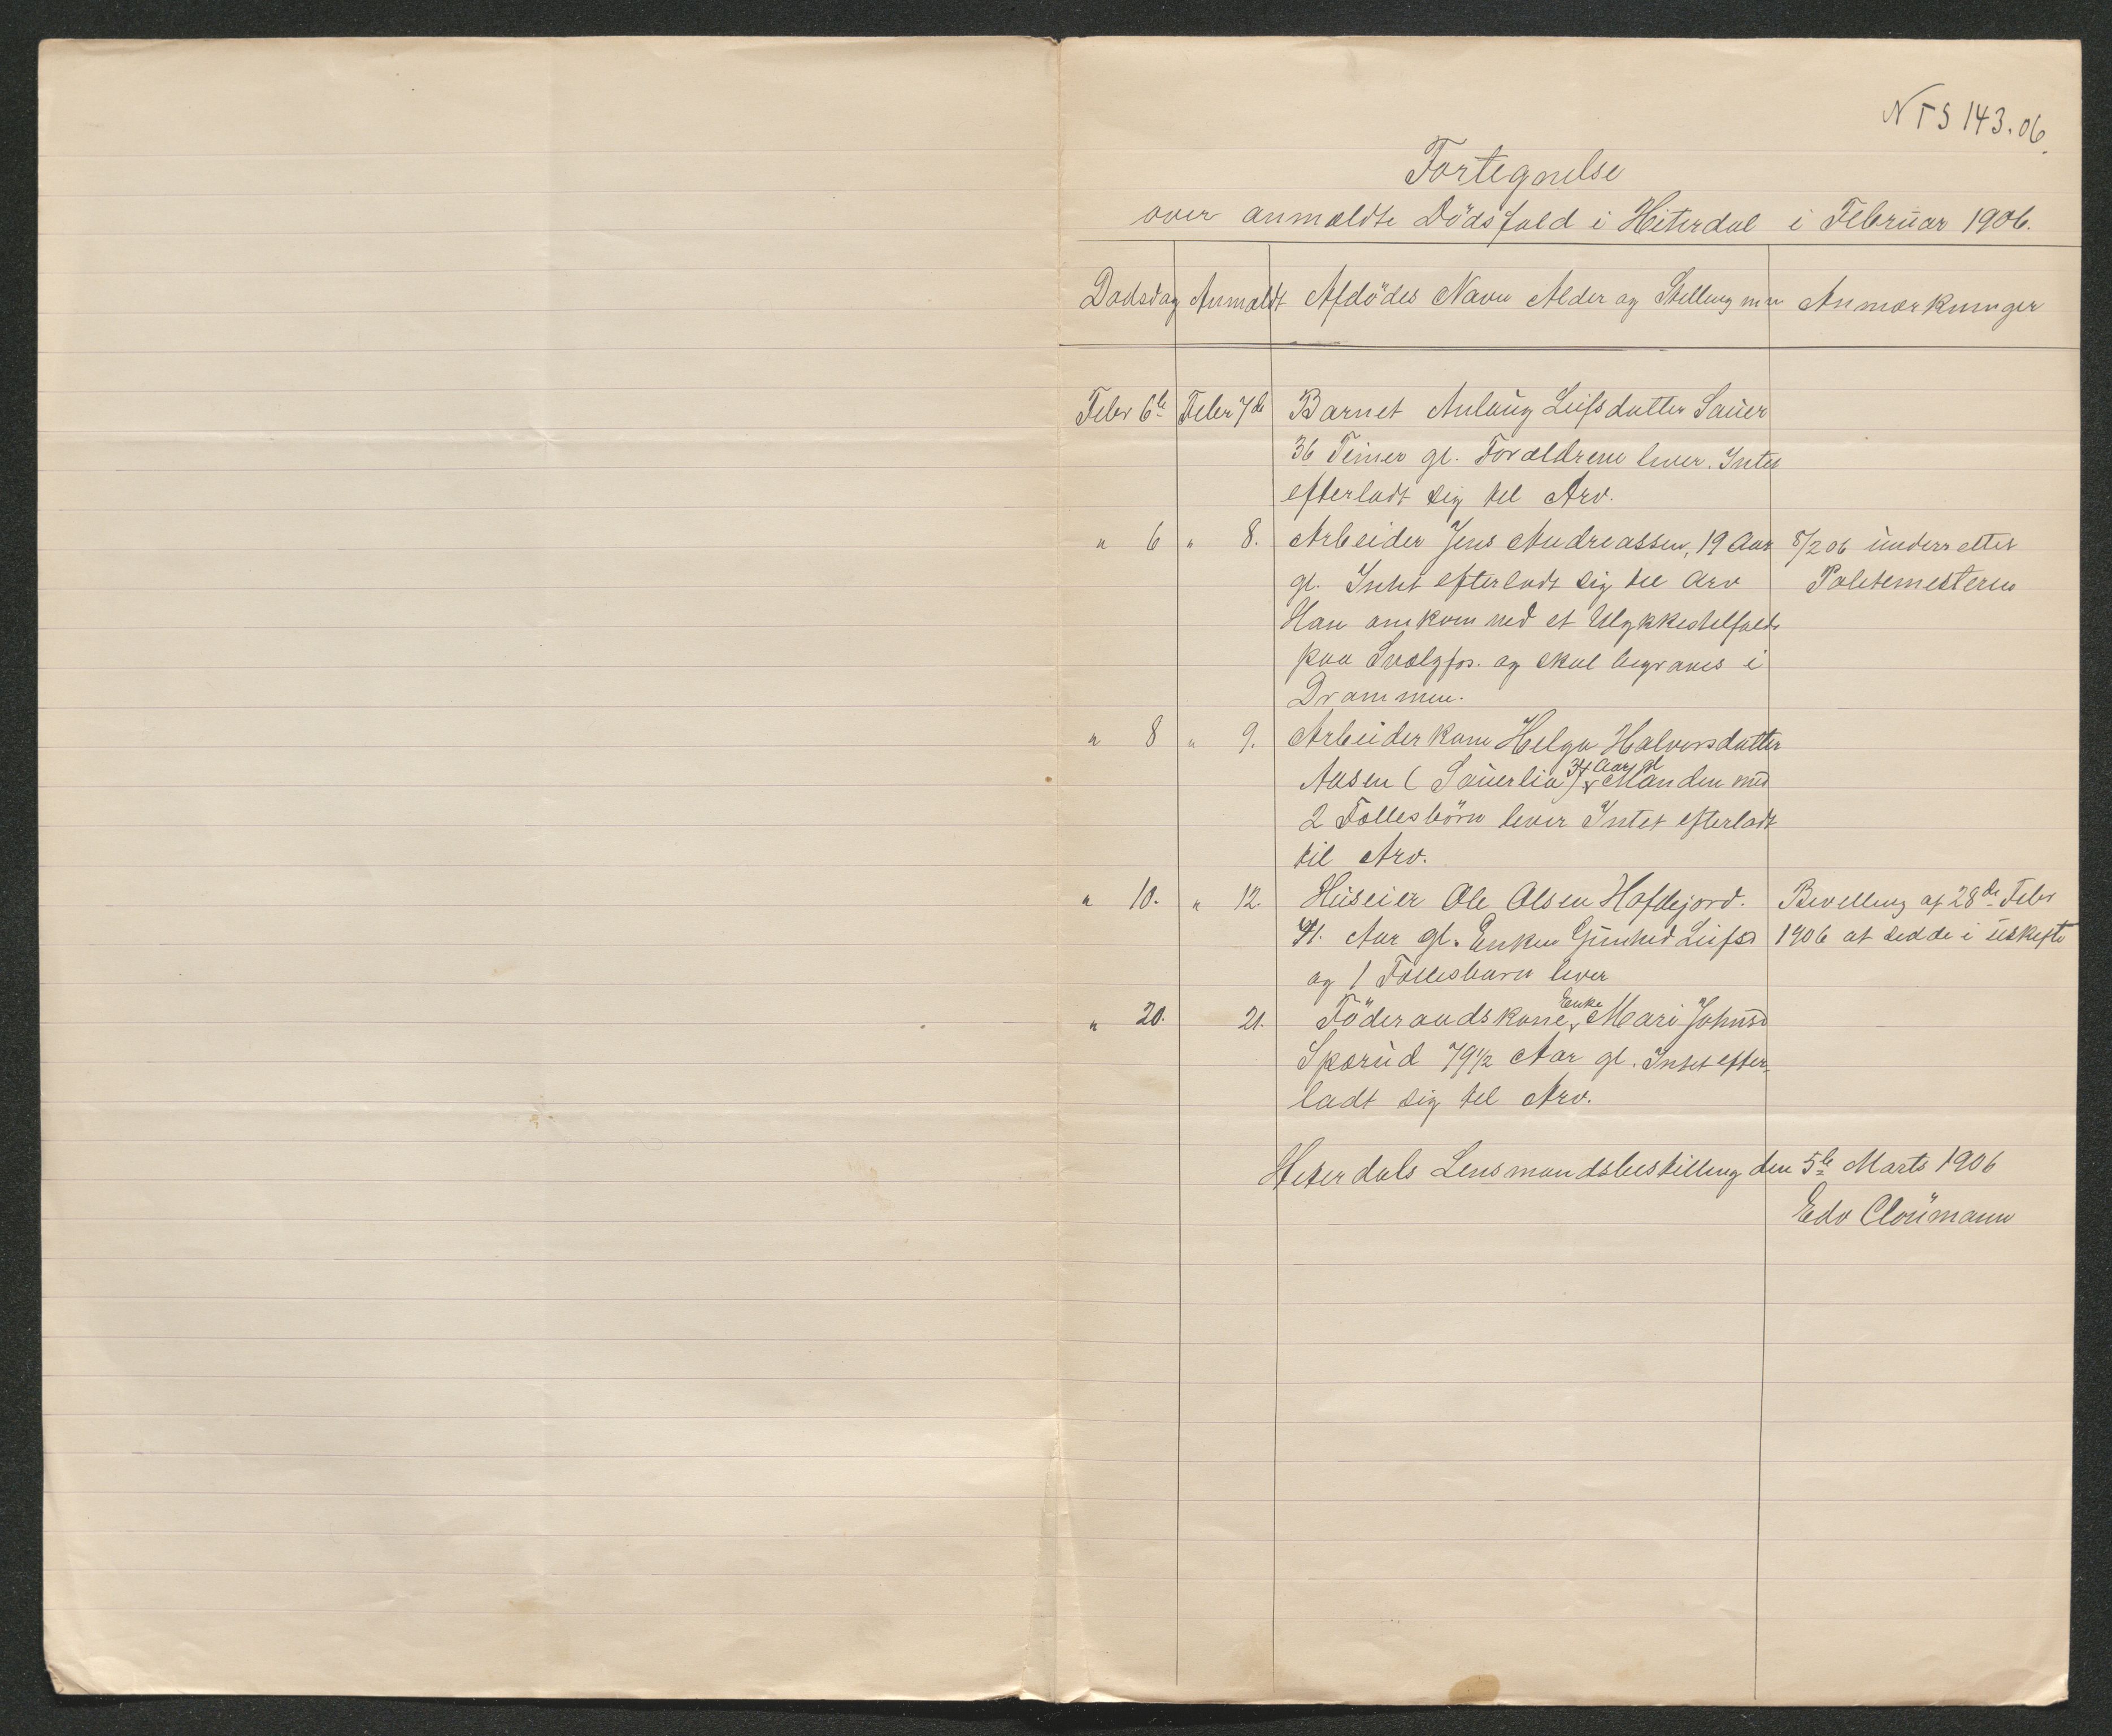 NTS 143.06.
Fortegnelse
over anmeldte Dödsfald i Hiterdal i Februar 1906.
Dødsdag Anmeldt Afdödes Navn Alder og Stilling m.m Anmærkninger
Febr 6te Febr 7de Barnet Anlaug Leifsdatter Sauer
36 Timer gl. Forældrene lever. Intet
efterladt sig til Arv.
" 6 " 8. Arbeider Jens Andreassen, 19 Aar 8/2 06 underrettet
gl. Intet efterladt sig til Arv Politimesteren
Han omkom ved et Ulykkestilfælde
paa Svælgfos. og skal begraves i
Drammen.
" 8 " 9. Arbeiderkone Helga Halvorsdatter
Aasen (Sauerlia) 34 Aar gl Manden med
2 Fællesbörn lever Intet efterladt
til Arv.
" 10. " 12. Huseier Ole Olsen Hafdejord. Bevilling af 28de Febr
Aar gl. Enken Gunhild Leifsd 1906 at sidde i uskifte
og 1 Fællesbarn lever
" 20. 21. Föderaadskone Enke Mari Johnsd
Sparud 79 1/2 Aar gl. Intet efter-
ladt sig til Arv.
Hiterdals Lensmandsbestilling den 5te Marts 1906
Edv Cloumann